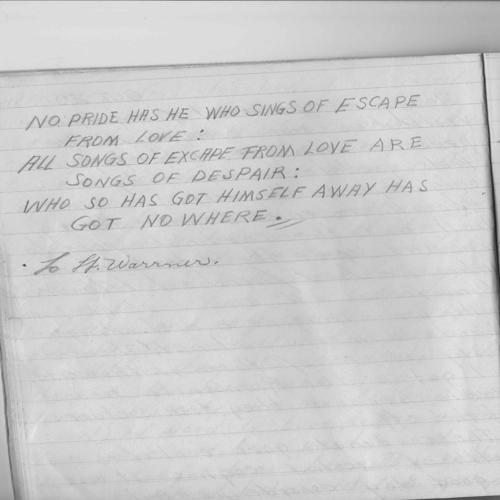 NO PRIDE HAS HE WHO SINGS OF ESCAPE
FROM LOVE:
ALL SONGS OF EXCAPE FROM LOVE ARE
SONGS OF DESPAIR:
WHO SO HAS GOT HIMSELF AWAY HAS
GOT NO WHERE.
To H. Warrner.